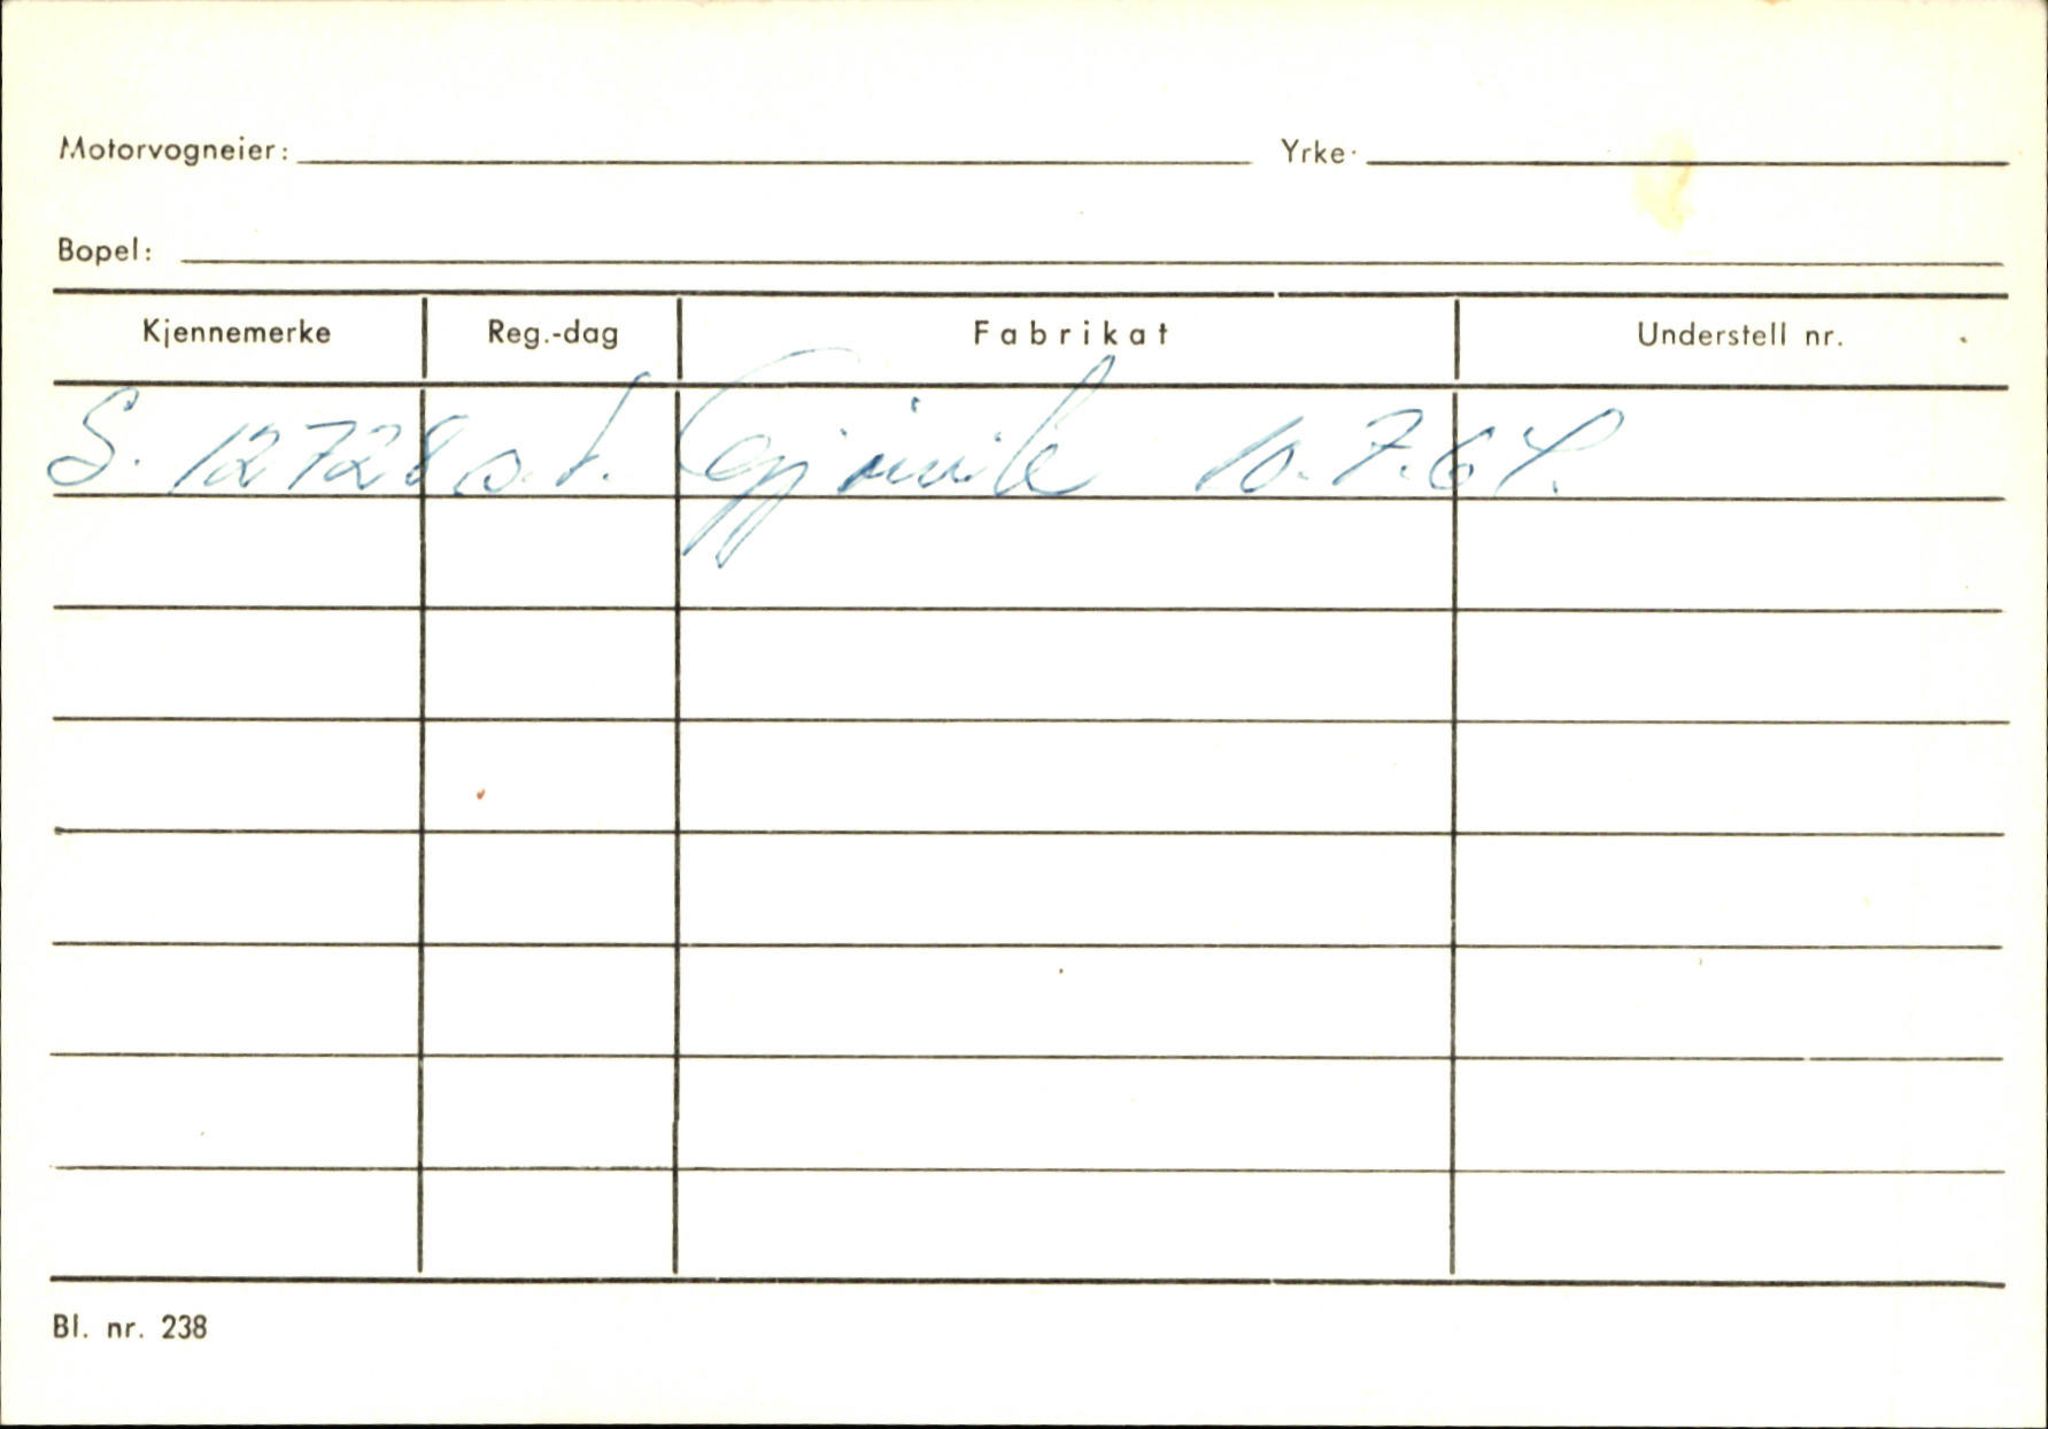 Motorvogneier: Yrke:
Bopel:
Kjennemerke Reg.-dag Fabrikat Understell nr.
S. 12728 o.f. Gjøvik 10.7.64.
Bl. nr. 238